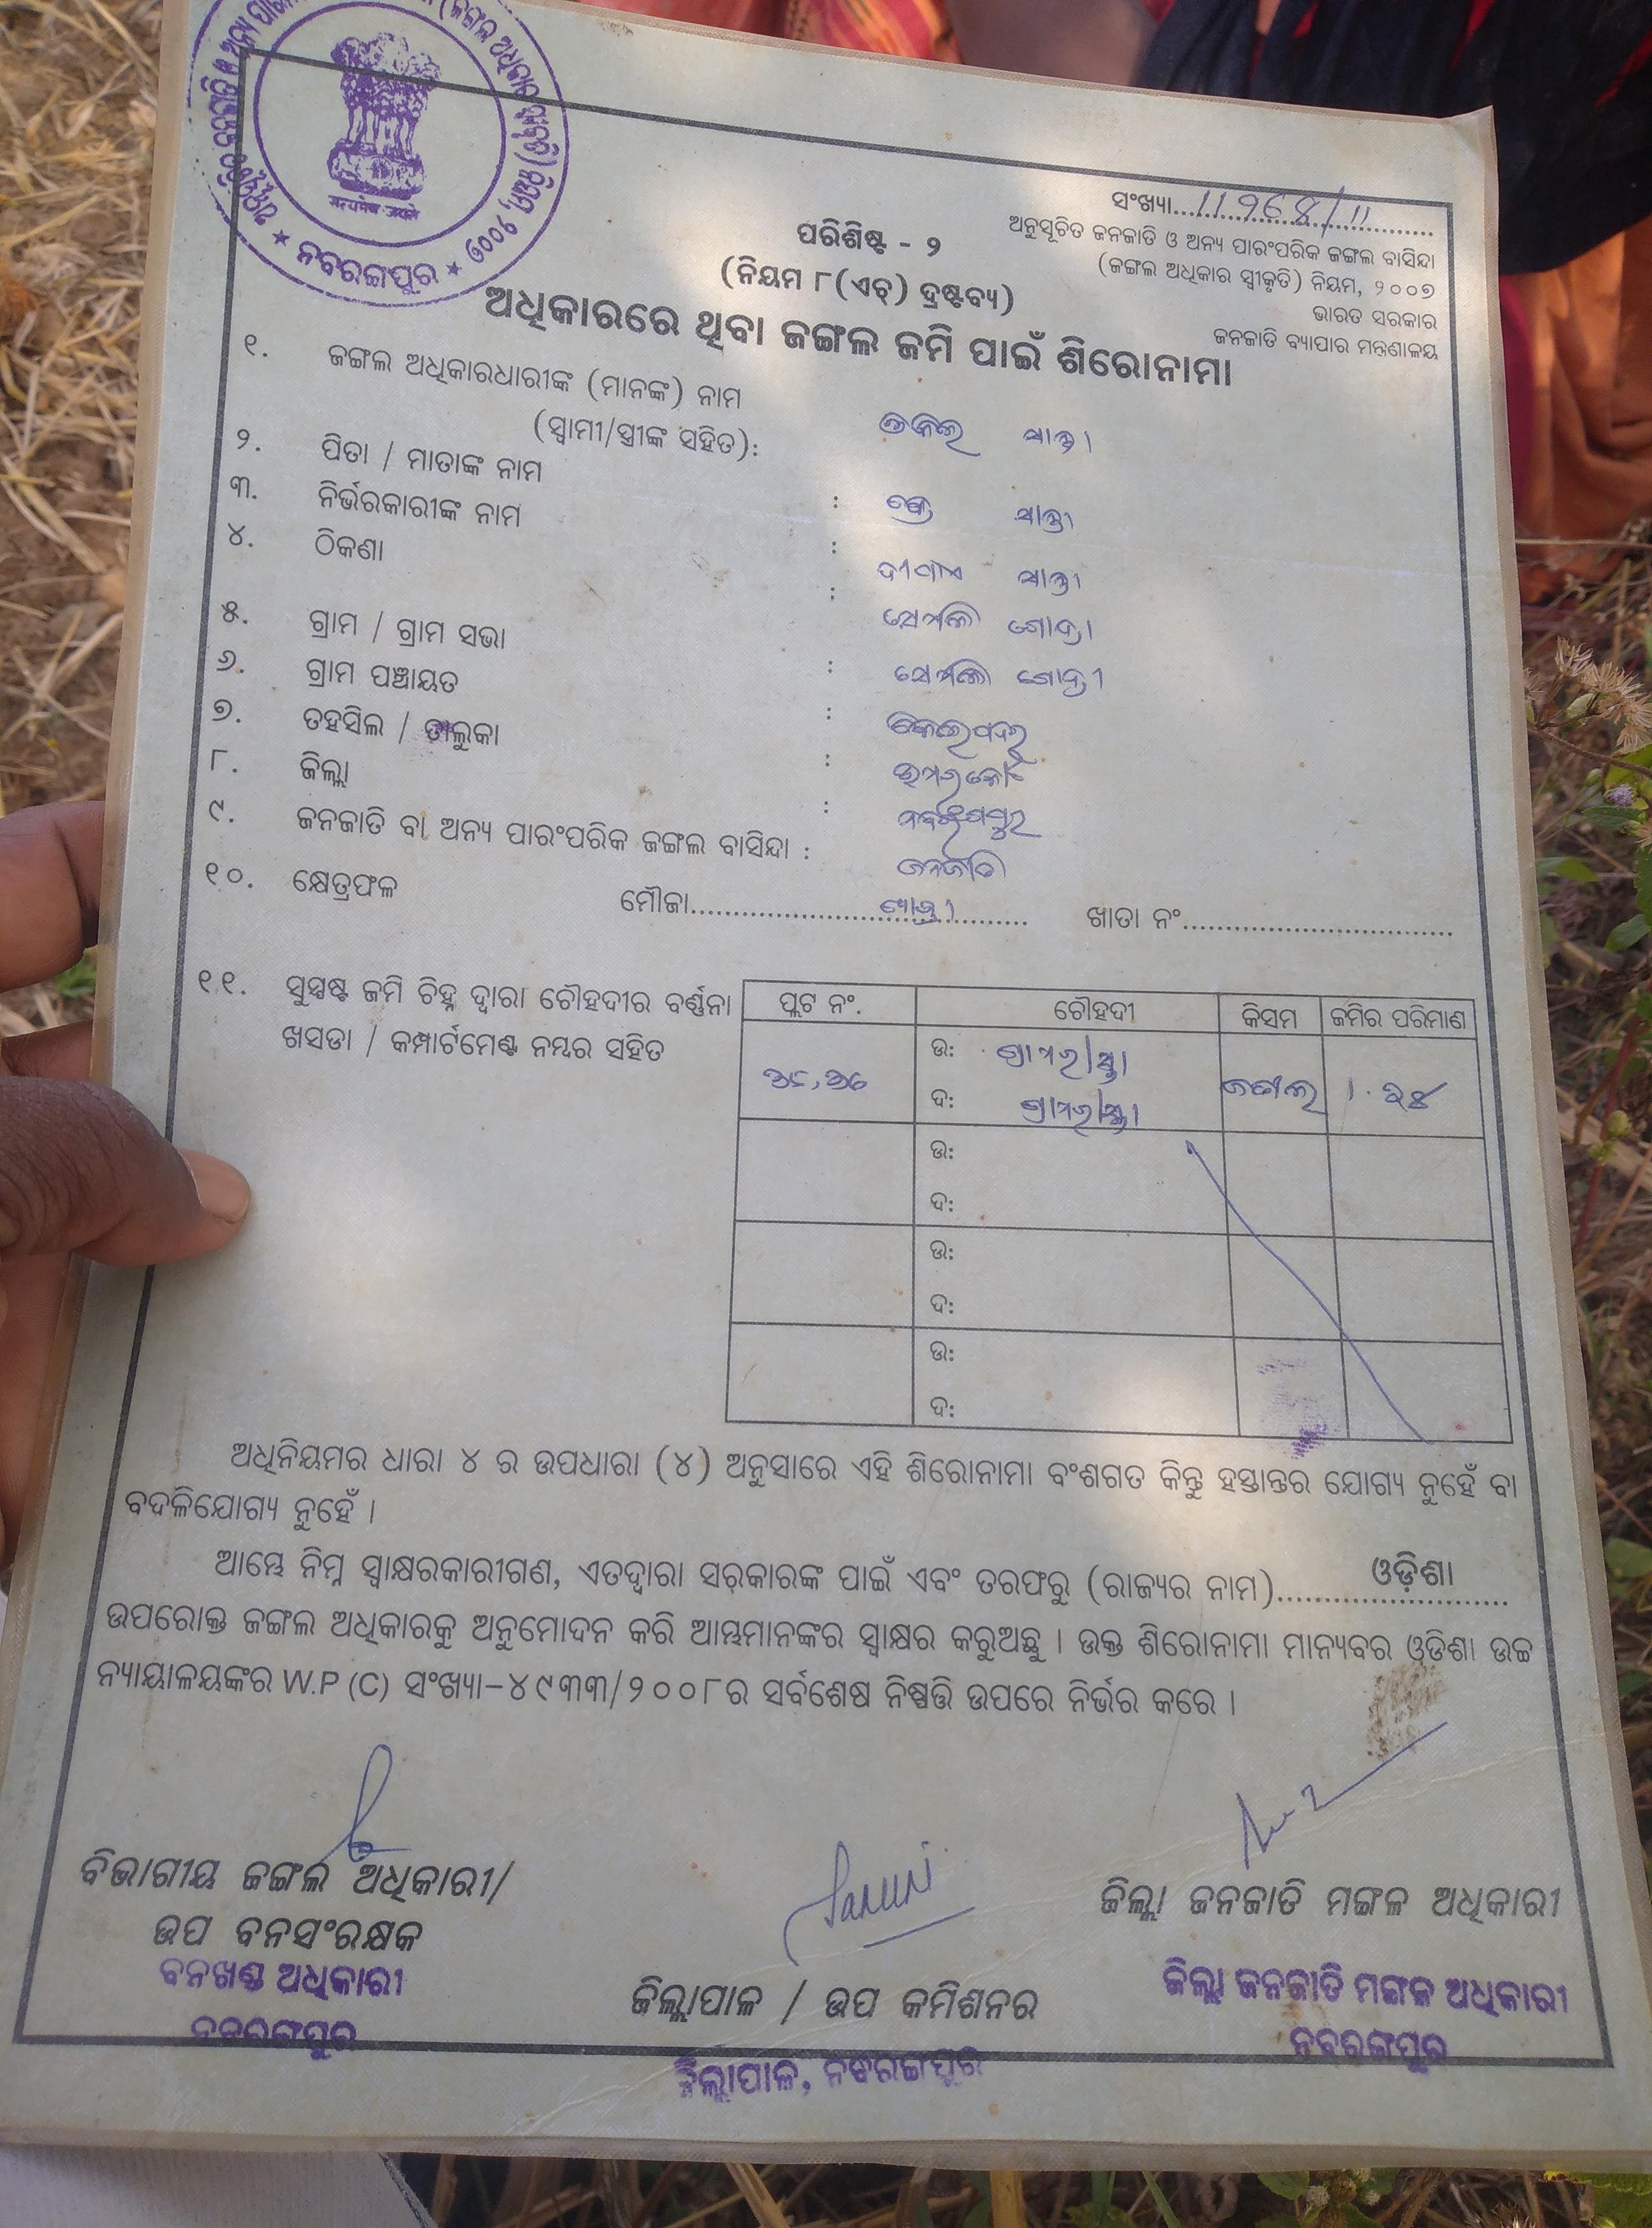 ନବରଙ୍ଗପୁର
ସଂଖ୍ୟା
ଅନୁସୂଚିତ ଜନଜାତି ଓ ଅନ୍ୟ ପାରଂପରିକ ଜଙ୍ଗଲ ବାସିନ୍ଦା
(ଜଙ୍ଗଲ ଅଧିକାର ସ୍ୱୀକୃତି) ନିୟମ, ୨୦୦୭
ଭାରତ ସରକାର
ଜନଜାତି ବ୍ୟାପାର ମନ୍ତ୍ରଣାଳୟ
ପରିଶିଷ୍ଟ - ୨
(ନିୟମ ୮(ଏଚ୍) ଦ୍ରଷ୍ଟବ୍ୟ)
ଅଧିକାରରେ ଥିବା ଜଙ୍ଗଲ ଜମି ପାଇଁ ଶିରୋନାମା
୧. ଜଙ୍ଗଲ ଅଧିକାରଧାରୀଙ୍କ (ମାନଙ୍କ) ନାମ
(ସ୍ୱାମୀ/ସ୍ତ୍ରୀଙ୍କ ସହିତ):
୨. ପିତା / ମାତାଙ୍କ ନାମ :
୩. ନିର୍ଭରକାରୀଙ୍କ ନାମ :
୪. ଠିକଣା :
୫. ଗ୍ରାମ / ଗ୍ରାମ ସଭା :
୬. ଗ୍ରାମ ପଞ୍ଚାୟତ :
୭. ତହସିଲ / ତାଲୁକା : ଉମରକୋଟ
୮. ଜିଲ୍ଲା : ନବରଂଗପୁର
୯. ଜନଜାତି ବା ଅନ୍ୟ ପାରଂପରିକ ଜଙ୍ଗଲ ବାସିନ୍ଦା : ଜନଜାତି
୧୦. କ୍ଷେତ୍ରଫଳ ମୌଜା ଖାତା ନଂ
୧୧. ସୁସ୍ପଷ୍ଟ ଜମି ଚିହ୍ନ ଦ୍ୱାରା ଚୌହଦୀର ବର୍ଣ୍ଣନା
ଖସଡା / କମ୍ପାର୍ଟମେଣ୍ଟ ନମ୍ବର ସହିତ
ପ୍ଲଟ ନଂ. ଚୌହଦୀ କିସମ ଜମିର ପରିମାଣ
ଉ: ଗ୍ରାମରାସ୍ତା
ଦ: ଗ୍ରାମରାସ୍ତା
ଜଙ୍ଗଲ
ଉ:
ଦ:
ଉ:
ଦ:
ଉ:
ଦ:
ଅଧିନିୟମର ଧାରା ୪ ର ଉପଧାରା (୪) ଅନୁସାରେ ଏହି ଶିରୋନାମା ବଂଶଗତ କିନ୍ତୁ ହସ୍ତାନ୍ତର ଯୋଗ୍ୟ ନୁହେଁ ବା
ବଦଳିଯୋଗ୍ୟ ନୁହେଁ ।
ଆମ୍ଭେ ନିମ୍ନ ସ୍ୱାକ୍ଷରକାରୀଗଣ, ଏତଦ୍ୱାରା ସରକାରଙ୍କ ପାଇଁ ଏବଂ ତରଫରୁ (ରାଜ୍ୟର ନାମ) ଓଡ଼ିଶା
ଉପରୋକ୍ତ ଜଙ୍ଗଲ ଅଧିକାରକୁ ଅନୁମୋଦନ କରି ଆମ୍ଭମାନଙ୍କର ସ୍ୱାକ୍ଷର କରୁଅଛୁ । ଉକ୍ତ ଶିରୋନାମା ମାନ୍ୟବର ଓଡିଶା ଉଚ୍ଚ
ନ୍ୟାୟାଳୟଙ୍କର W.P (C) ସଂଖ୍ୟା–୪୯୩୩/୨୦୦୮ର ସର୍ବଶେଷ ନିଷ୍ପତ୍ତି ଉପରେ ନିର୍ଭର କରେ ।
ବିଭାଗୀୟ ଜଙ୍ଗଲ ଅଧିକାରୀ/
ଉପ ବନସଂରକ୍ଷକ
ବନଖଣ୍ଡ ଅଧିକାରୀ
ନବରଙ୍ଗପୁର
ଜିଲ୍ଲାପାଳ / ଉପ କମିଶନର
ଜିଲ୍ଲାପାଳ, ନବରଙ୍ଗପୁର
ଜିଲ୍ଲା ଜନଜାତି ମଙ୍ଗଳ ଅଧିକାରୀ
ଜିଲ୍ଲା ଜନଜାତି ମଙ୍ଗଳ ଅଧିକାରୀ
ନବରଙ୍ଗପୁର